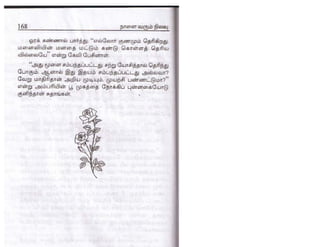 168 நாளை வரும் நிலவு
ஓரக் கண்ணால் பார்த்து, "எல்லோர் குணமும் தெரிகிறது.
மனைவியின் மனதை மட்டும் கண்டு கொள்ளத் தெரிய
வில்லையே" என்று கேலி பேசினாள்.
"அது மூளை சம்பந்தப்பட்டது. சற்று யோசித்தால் தெரிந்து
போகும். ஆனால் இது இதயம் சம்பந்தப்பட்டது அல்லவா?
வேறு மாதிரிதான் அறிய முடியும். முயற்சி பண்ணட்டுமா?"
என்று அம்பரியின் பூ முகத்தை நோக்கிப் புன்னகையோடு
குனிந்தான் சுதாங்கன்.